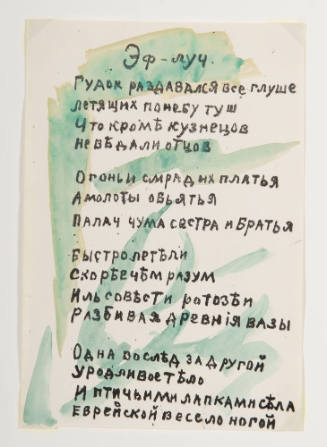 Эф-луч.
Гудок раздавался все глуше
летящих понебу туш
Что кромѣ кузнецов
невѣдали отцов
Огоньи смрад их платья
Амолоты обьятья
Палач чума сестра и братья
Быстролетѣли
Скорѣечѣм разум
Ильсовѣсти ротозѣи
Разбивая древнія вазы
Одна вослѣд за другой
Уродливоетѣло
И птичьими лапкамисѣла
Еврейской весело ногой